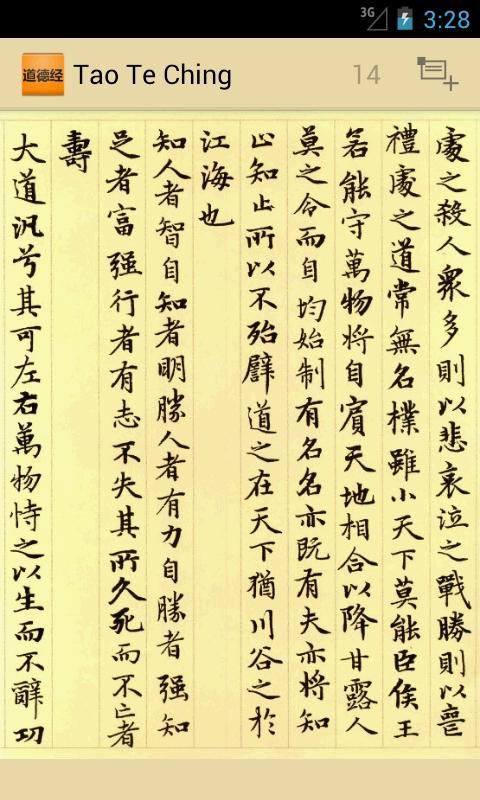 3G 3:28
道德经 Tao Te Ching 14
處之殺人衆多則以悲哀泣之戰勝則以喪
禮處之道常無名樸雖小天下莫能臣侯王
若能守萬物將自賓天地相合以降甘露人
莫之令而自均始制有名名亦既有夫亦將知
止知止所以不殆譬道之在天下猶川谷之於
江海也
知人者智自知者明勝人者有力自勝者強知
足者富強行者有志不失其所久死而不亡者
壽
大道汎兮其可左右萬物恃之以生而不辭功